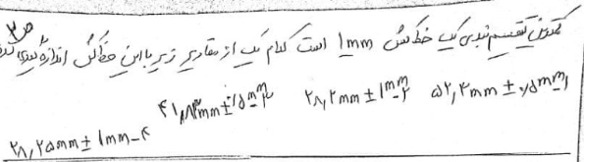 کمترین تقسیم بندی یک خط کش 1mm است کدام یک از مقادیر زیر با این خط کش اندازه گیری شده
۱_ ۵۲٫۳mm ± ۰٫۵mm ۲_ ۲۸٫۲mm ± ۱mm ۳_ mm ± ۰٫۵mm
۴_ ۲۸٫۲۵mm ± ۱mm